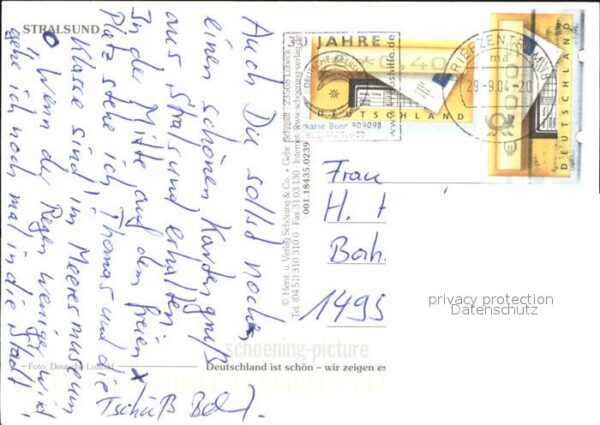 STRALSUND
Auch Du sollst noch
einen schönen Kartengruß
aus Stralsund erhalten.
In der Mitte auf dem freien x
Platz stehe ich. Thomas und die
Klasse sind im Meeresmuseum
Wenn der Regen weniger wird
gehe ich noch mal in die Stadt!
Tschüß
Foto: Deutsche Luftbild
© Herst. u. Verlag Schöning & Co. + Gebr. Schmidt · 23568 Lübeck
Tel. (04 51) 310 310 0 · Fax 31 03 130 · Internet: www.schoening-verlag.de
001.18435.0239
30 JAHRE
DEUTSCHLAND
DEUTSCHLAND
BRIEFZENTRUM 18
ma
29-9.04-20
Frau
H.
1495
privacy protection
Datenschutz
schoening-picture
Deutschland ist schön – wir zeigen es